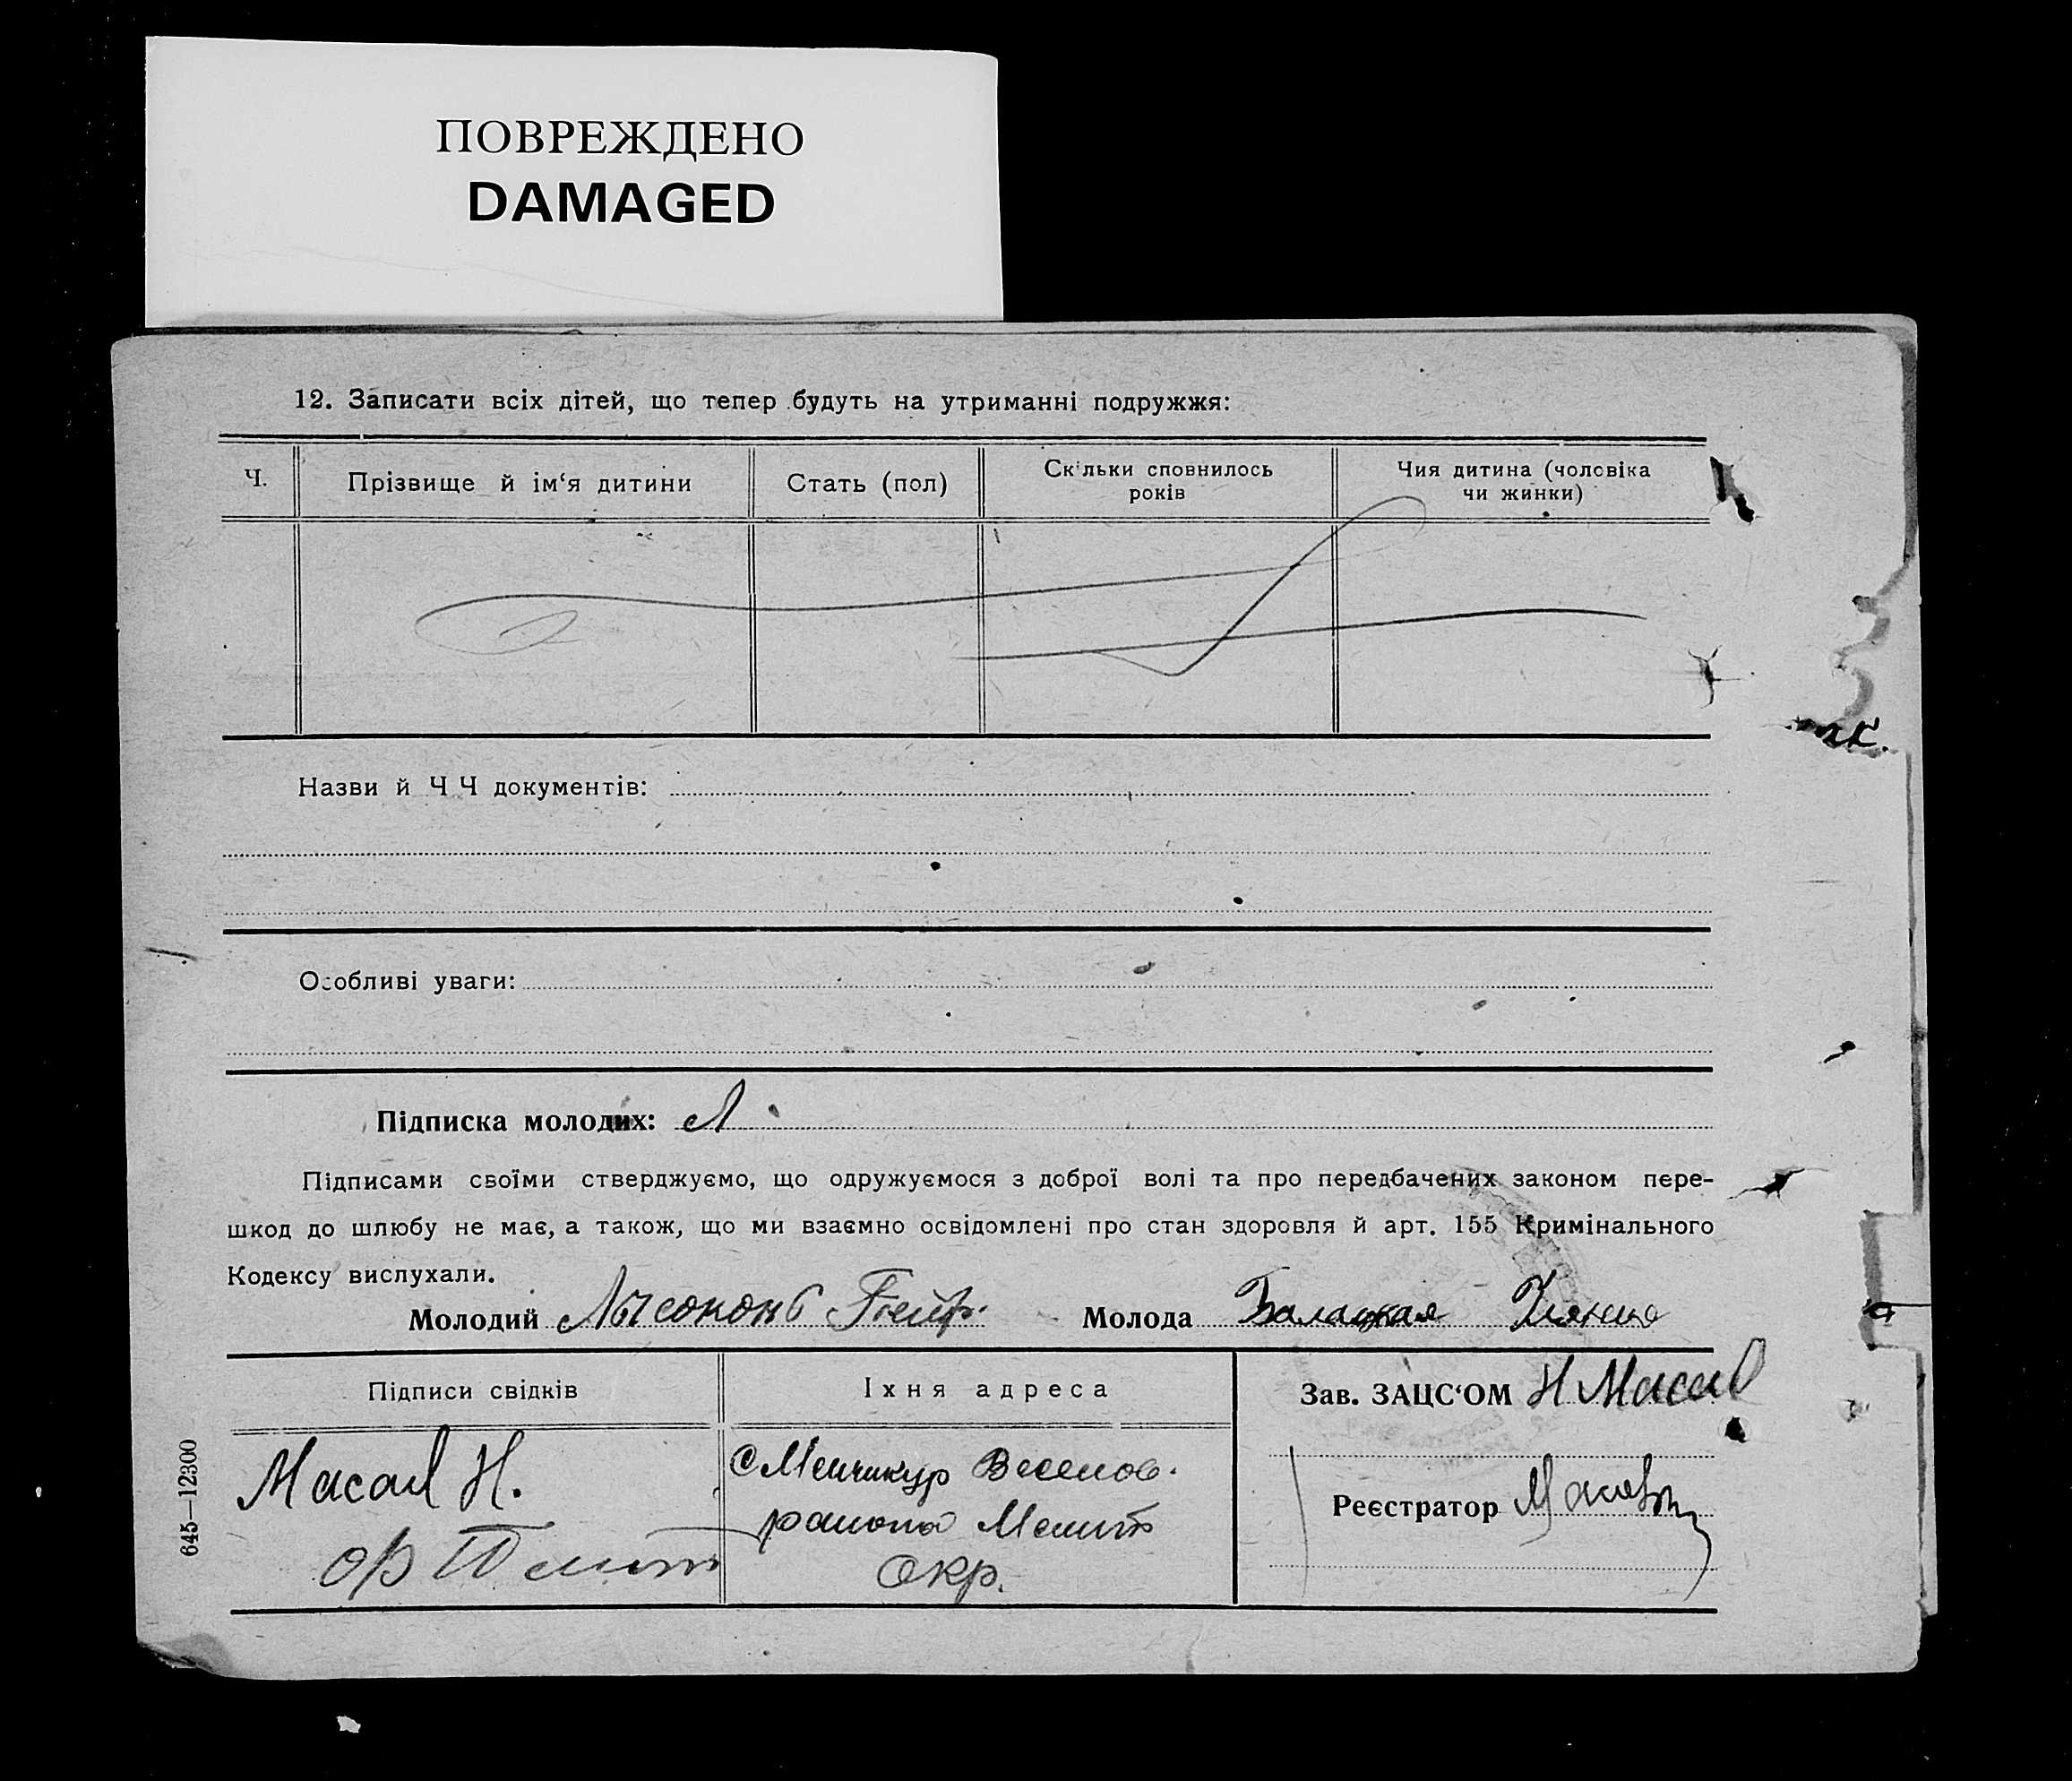 ПОВРЕЖДЕНО
DAMAGED
12. Записати всіх дітей, що тепер будуть на утриманні подружжя:
Ч.
Прізвище й ім‘я дитини
Стать (пол)
Скільки сповнилось
років
Чия дитина (чоловіка
чи жинки)
Назви й Ч Ч документів:
Особливі уваги:
Підписка молодих: Л
Підписами своїми стверджуємо, що одружуємося з доброї волі та про передбачених законом пере-
шкод до шлюбу не має, а також, що ми взаємно освідомлені про стан здоровля й арт. 155 Кримінального
Кодексу вислухали.
Молодий Лысоконь Молода Балацкая
Підписи свідків
Їхня адреса
Зав. ЗАЦС‘ОМ Н Масал
Масал Н.
с Менчикур Веселов.
района Мелит
Окр.
Реєстратор
645—12300